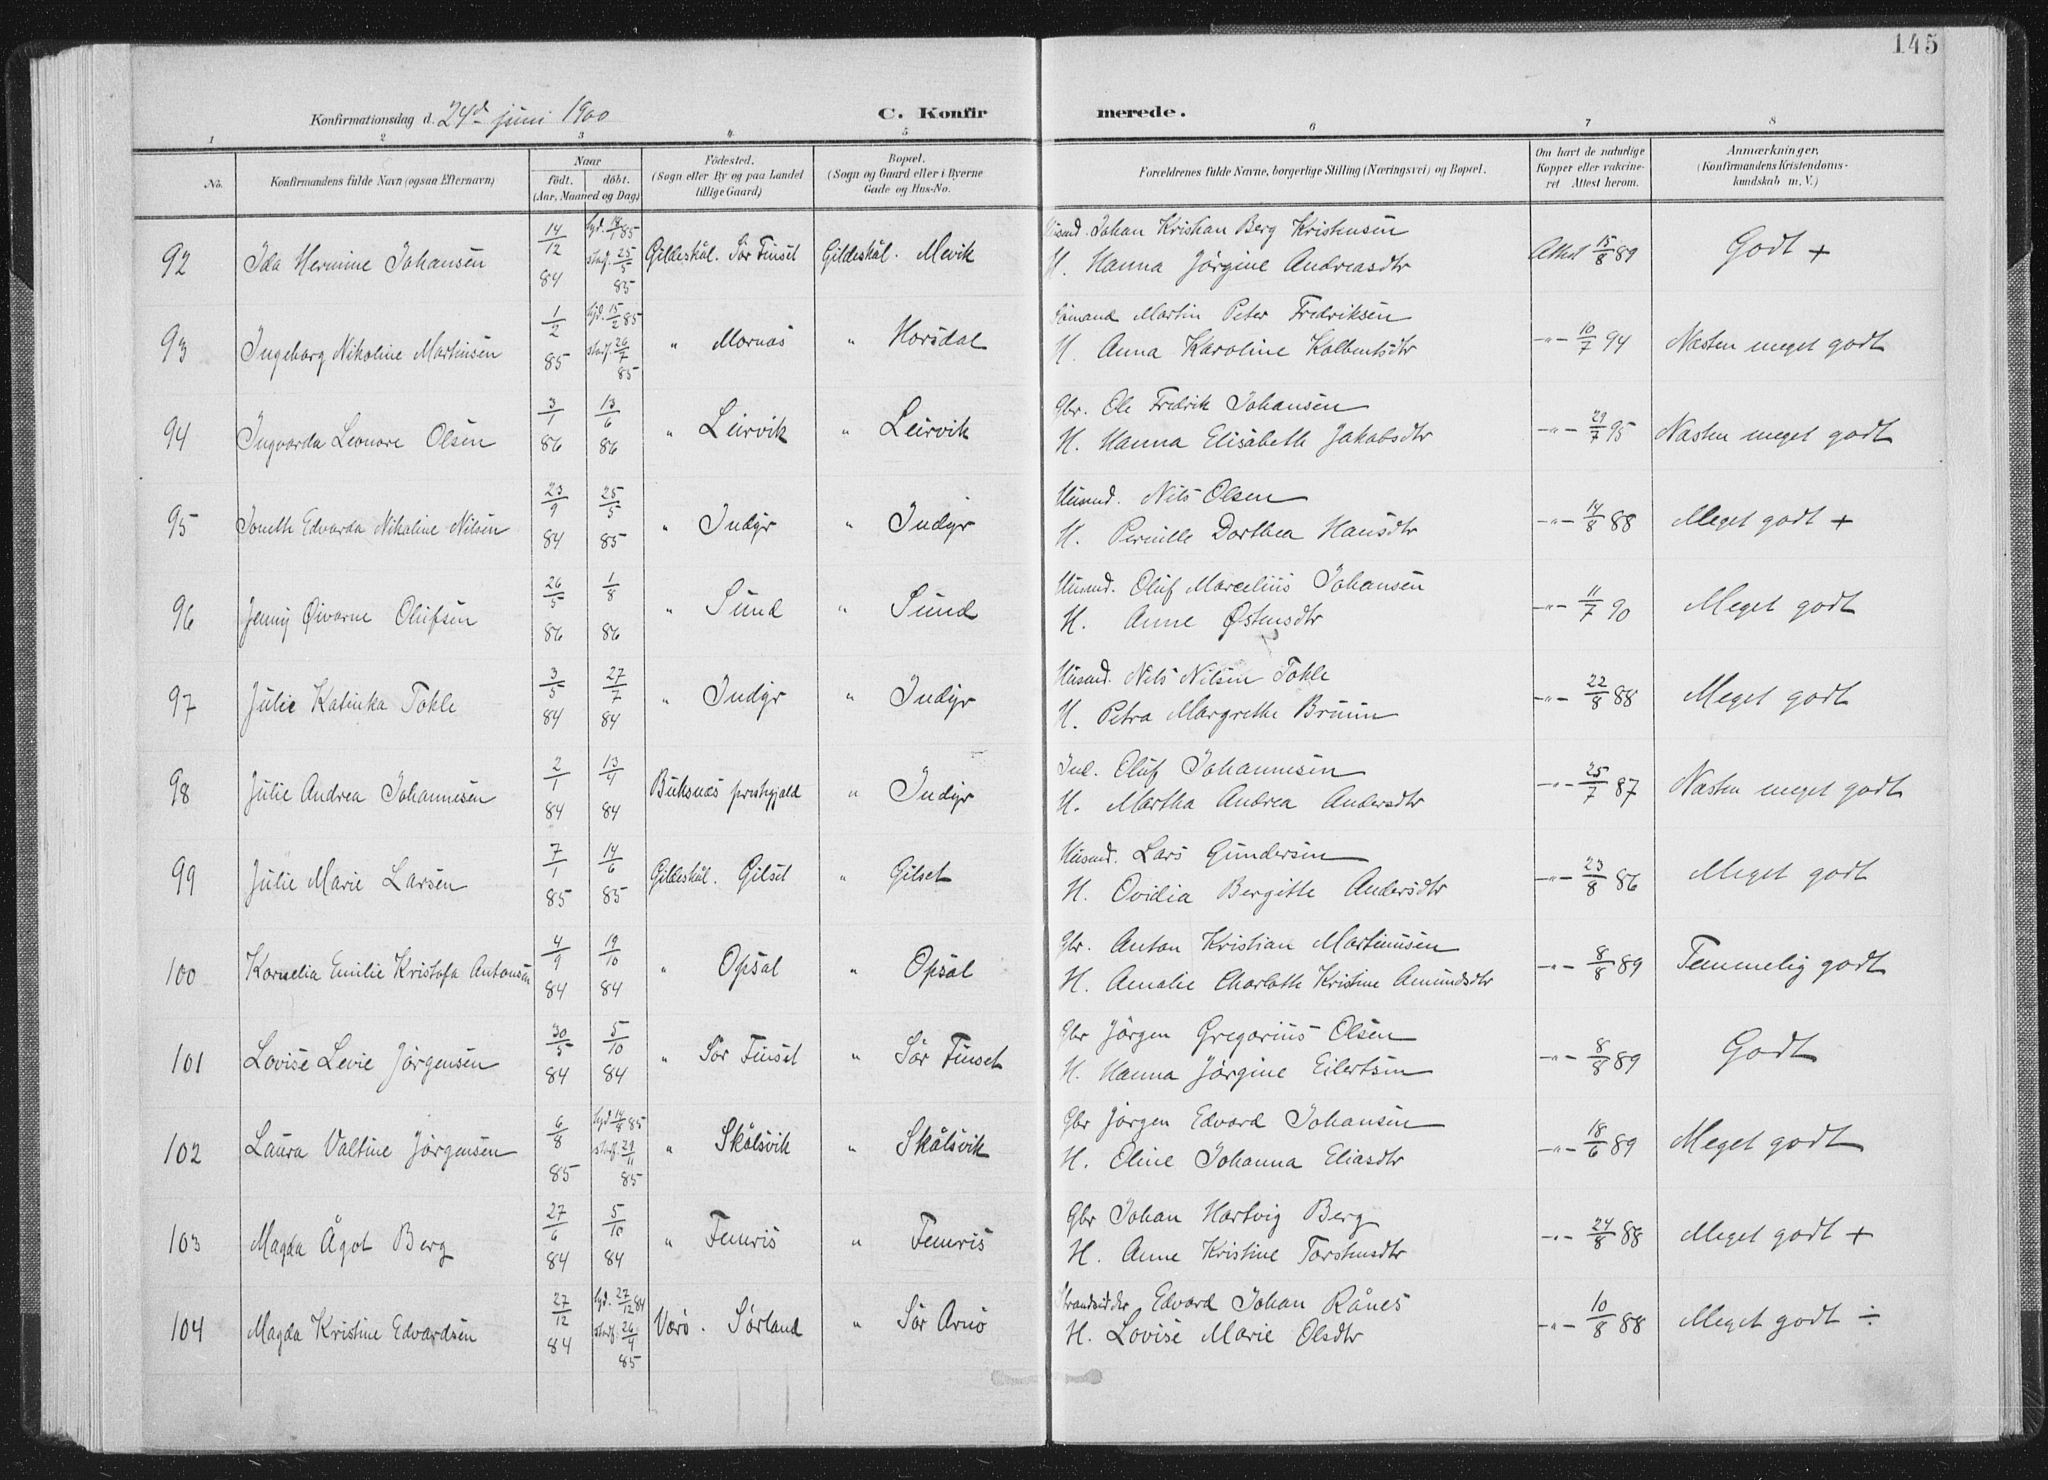 145
Konfirmationsdag d. 24d juni 1900
C. Konfirmerede.
1 2 3 4 5 6 7 8
No. Konfirmandens fulde Navn (ogsaa Efternavn) Naar födt. döbt. (Aar, Maaned og Dag) Födested. (Sogn eller By og paa Landet tillige Gaard) Bopæl. (Sogn og Gaard eller i Byerne Gade og Hus-No. Forældrenes fulde Navne, borgerlige Stilling (Næringsvei) og Bopæl. Om havt de naturlige Kopper eller vakcineret Attest herom. Anmærkninger. (Konfirmandens Kristendomskundskab m. V.)
92 Ida Hermine Johansen 14/12 84 hjd. 14/1 85 stadf. 25/5 85 Gildeskål. Sör Finset Gildeskål. Mevik Husmd. Johan Kristian Berg Kristensen
H. Hanna Jörgine Andreasdtr Attest 15/8 89 Godt +
93 Ingeborg Nikoline Martinsen 1/2 85 hjd. 15/2 85 stadf. 26/7 85 " Mornæs " Horsdal Sömand Martin Peter Fredriksen
H. Anna Karoline Kolbentsdtr -"- 10/7 94 Næsten meget godt
94 Ingvarda Leonore Olsen 3/1 86 13/6 86 " Leirvik " Leirvik Gbr. Ole Fredrik Johansen
H. Hanna Elisabeth Jakobsdtr -"- 29/7 95 Næsten meget godt
95 Joneth Edvarda Nikoline Nilsen 23/9 84 25/5 85 " Indyr " Indyr Husmd. Nils Olsen
H. Pernille Dorthea Hansdtr -"- 14/8 88 Meget godt +
96 Jenny Øivarne Olufsen 26/5 86 1/8 86 " Sund " Sund Husmd. Oluf Marcelius Johansen
H. Anne Østensdtr -"- 11/7 90 Meget godt
97 Julie Katinka Tokle 3/5 84 27/7 84 " Indyr " Indyr Husmd. Nils Nilsen Tokle
H. Petra Margrethe Bruun -"- 22/8 88 Meget godt
98 Julie Andrea Johannesen 2/1 84 13/4 84 Buksnæs præstegjeld " Indyr Ind. Oluf Johannesen
H. Martha Andrea Andersdtr -"- 25/7 87 Næsten meget godt
99 Julie Marie Larsen 7/1 85 14/6 85 Gildeskål. Gilset " Gilset Husmd. Lars Gundersen
H. Ovidia Bergitte Andersdtr -"- 23/8 86 Meget godt
100 Kornelia Emilie Kristofa Antonsen 4/9 84 19/10 84 " Opsal " Opsal Gbr. Anton Kristian Martinusen
H. Amalie Charlotte Kristine Amundsdtr -"- 8/8 89 Temmelig godt
101 Lovise Levie Jörgensen 30/5 84 5/10 84 " Sör Finset " Sör Finset Gbr Jörgen Gregorius Olsen
H. Hanna Jörgine Eilertsen -"- 8/8 89 Godt
102 Laura Valtine Jörgensen 6/8 85 hjd. 14/8 85 stadf. 29/11 85 " Skålsvik " Skålsvik Gbr Jörgen Edvard Johansen
H. Eline Johanna Eliasdtr -"- 18/6 89 Meget godt
103 Magda Ågot Berg 27/6 84 5/10 84 " Femris " Femris Gbr Johan Hartvig Berg
H. Anne Kristine Torstensdtr -"- 24/8 88 Meget godt +
104 Magda Kristine Edvardsen 27/12 84 hjd. 27/12 84 stadf. 26/4 85 Værö. Sörland " Sör Arnö Strandsidder Edvard Johan Rånes
H. Lovise Marie Olsdtr -"- 10/8 88 Meget godt ÷